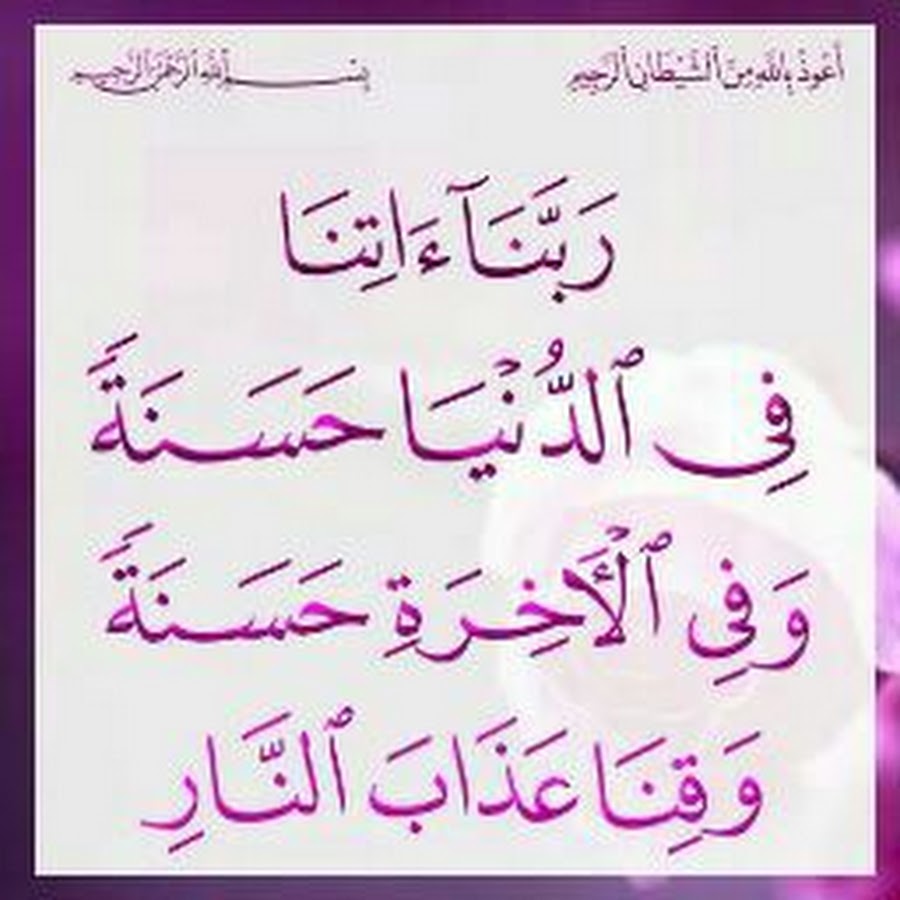 أَعُوذُ بِاللَّهِ مِنَ الشَّيْطَانِ الرَّجِيمِ بِسْمِ اللَّهِ الرَّحْمَٰنِ الرَّحِيمِ
رَبَّنَآ ءَاتِنَا
فِى ٱلدُّنْيَا حَسَنَةً
وَفِى ٱلْأَخِرَةِ حَسَنَةً
وَقِنَا عَذَابَ ٱلنَّارِ